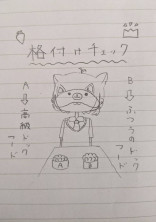 格付けチェック
B⇨ふつうのドッグフード
A⇨高級ドッグフード
A
B